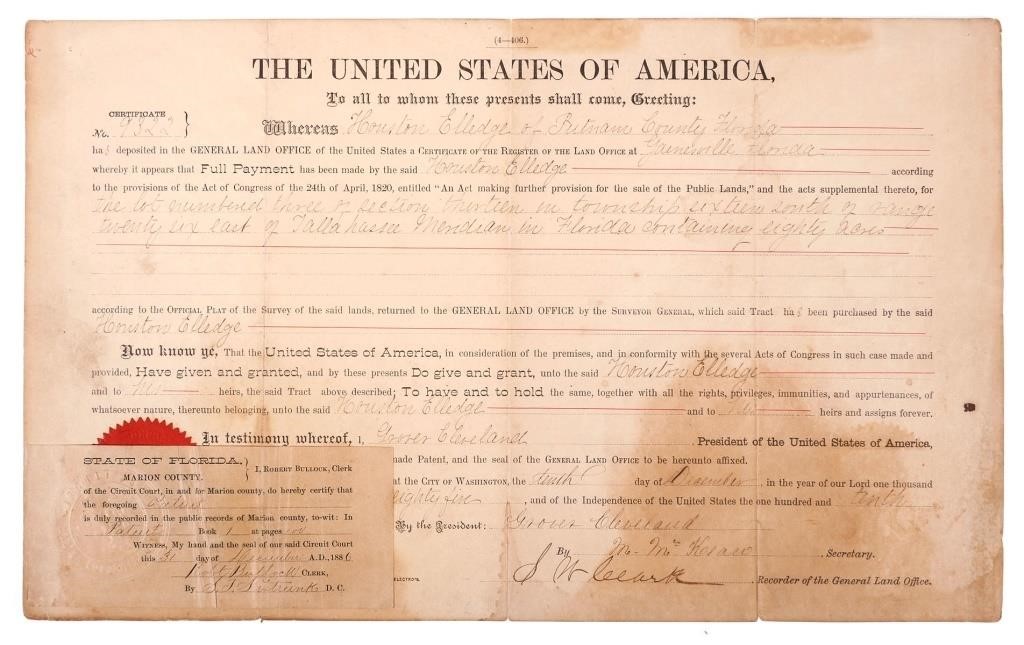 (4—406.)
THE UNITED STATES OF AMERICA,
To all to whom these presents shall come, Greeting:
CERTIFICATE
No. 9322 }
Whereas Houston Elledge of Putnam County Florida
has deposited in the GENERAL LAND OFFICE of the United States a CERTIFICATE OF THE REGISTER OF THE LAND OFFICE AT Gainesville Florida
whereby it appears that Full Payment has been made by the said Houston Elledge according
to the provisions of the Act of Congress of the 24th of April, 1820, entitled “An Act making further provision for the sale of the Public Lands,” and the acts supplemental thereto, for
the lot numbered three of section thirteen in township sixteen south of range
twenty six east of Tallahassee Meridian in Florida containing eighty acres
according to the OFFICIAL PLAT of the Survey of the said lands, returned to the GENERAL LAND OFFICE by the SURVEYOR GENERAL, which said Tract has been purchased by the said
Houston Elledge
Now know ye, That the United States of America, in consideration of the premises, and in conformity with the several Acts of Congress in such case made and
provided, Have given and granted, and by these presents Do give and grant, unto the said Houston Elledge
and to his heirs, the said Tract above described; To have and to hold the same, together with all the rights, privileges, immunities, and appurtenances, of
whatsoever nature, thereunto belonging, unto the said Houston Elledge and to his heirs and assigns forever.
In testimony whereof, I, Grover Cleveland, President of the United States of America,
made Patent, and the seal of the GENERAL LAND OFFICE to be hereunto affixed.
at the CITY OF WASHINGTON, the tenth day of December, in the year of our Lord one thousand
eighty five, and of the Independence of the United States the one hundred and tenth
By the President: Grover Cleveland
By M. McKean, Secretary.
S W Clark, Recorder of the General Land Office.
STATE OF FLORIDA. }
MARION COUNTY. } I, ROBERT BULLOCK, Clerk
of the Circuit Court, in and for Marion county, do hereby certify that the
the foregoing
is duly recorded in the public records of Marion county, to-wit: In
Patent Book 1 at pages
WITNESS, My hand and the seal of our said Circuit Court
this 31 day of December A.D., 1886
Robt Bullock CLERK,
By D. C.